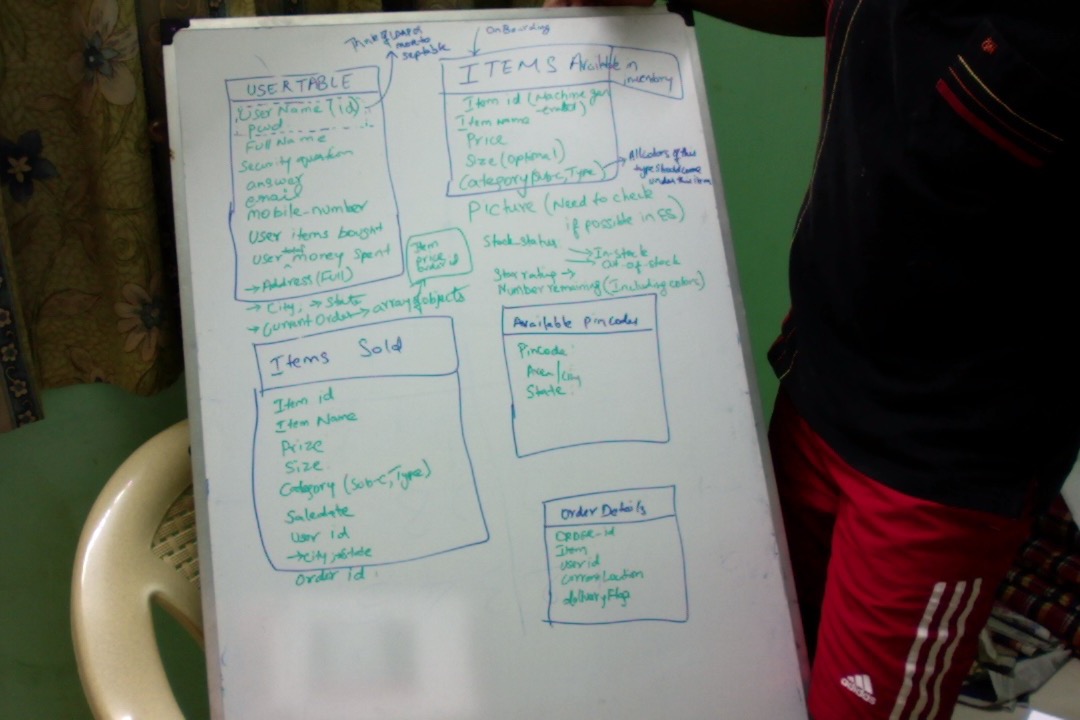 Think of
more to
septable
USER TABLE
User Name (id)
Pwd
Full Name
Security question
answer
email
mobile-number
User items bought
User total money spent
→ Address (Full)
→ City, → State
→ Current Order → array of objects
Item
price
order id
OnBoarding
ITEMS Available in
inventory
Item id (Machine gen
-erated)
Item name
Price
Size (Optional)
Category (Sub-c, Type)
All colors of this
type should come
under this item
Picture (Need to check
if possible in ES)
Stock_status
In-stock
Out-of-stock
Star rating →
Number remaining (Including colors)
Items Sold
Item id
Item Name
Prize
Size
Category (Sub-C, Type)
Saledate
User id
→ City, state
Order id
Available Pincodes
Pincode
Area/City
State
Order Details
ORDER-id
Item
User id
Current Location
delivery Flag
adidas